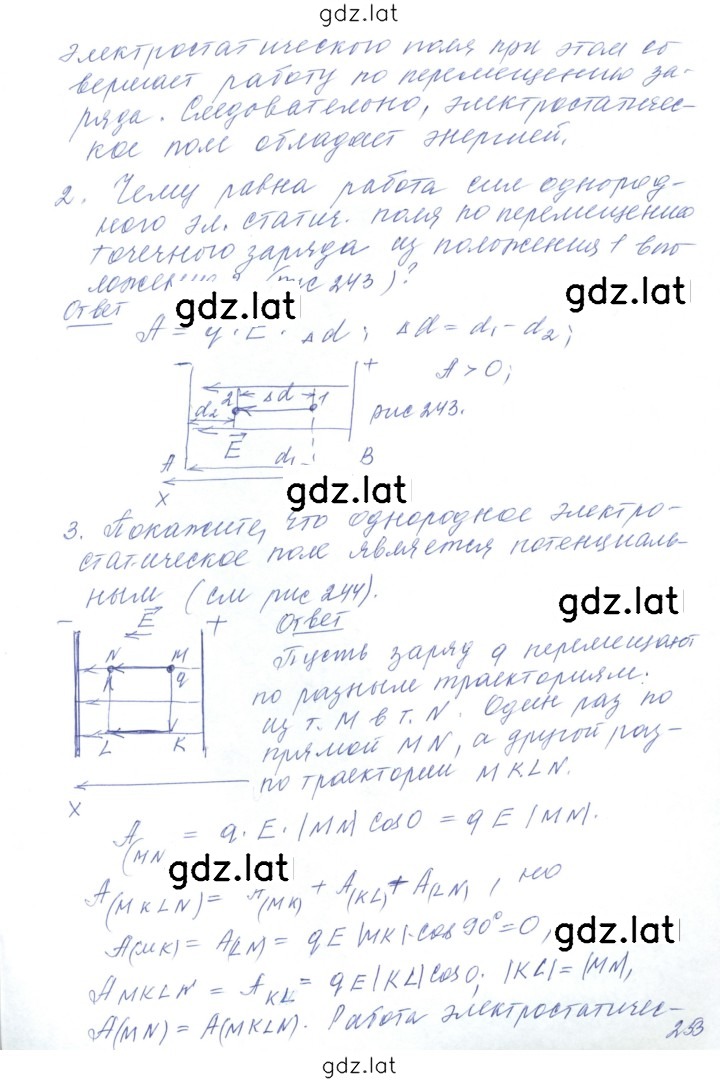 gdz.lat
электростатического поля при этом со
вершает работу по перемещению за-
ряда. Следовательно, электростатичес-
кое поле обладает энергией.
2. Чему равна работа сил однород-
ного эл. статич. поля по перемещению
точечного заряда из положения 1 в по-
243)?
gdz.lat
Ответ
gdz.lat
Δd; Δd = d₁ - d₂;
- +
A > 0;
2 Δd 1
d₂
рис 243.
E
A d₁ B
X
gdz.lat
3. Покажите, что однородное электро-
статическое поле является потенциаль-
ным (см рис 244).
gdz.lat
- E +
Ответ
N M
q
L K
X
Пусть заряд q перемещают
по разным траекториям.
из т. M в т. N. Один раз по
прямой MN, а другой раз-
по траектории MKLN.
A(MN = q·E·|MN| cos0 = qE|MN|.
gdz.lat
A(MKLN) = (MK) + A(KL) + A(LN), но
A(MK) = A(LN) = qE|MK|·cos90° = 0,
gdz.lat
A MKLN = A KL = qE|KL|cos0; |KL| = |MN|,
A(MN) = A(MKLN). Работа электростатичес-
253
gdz.lat